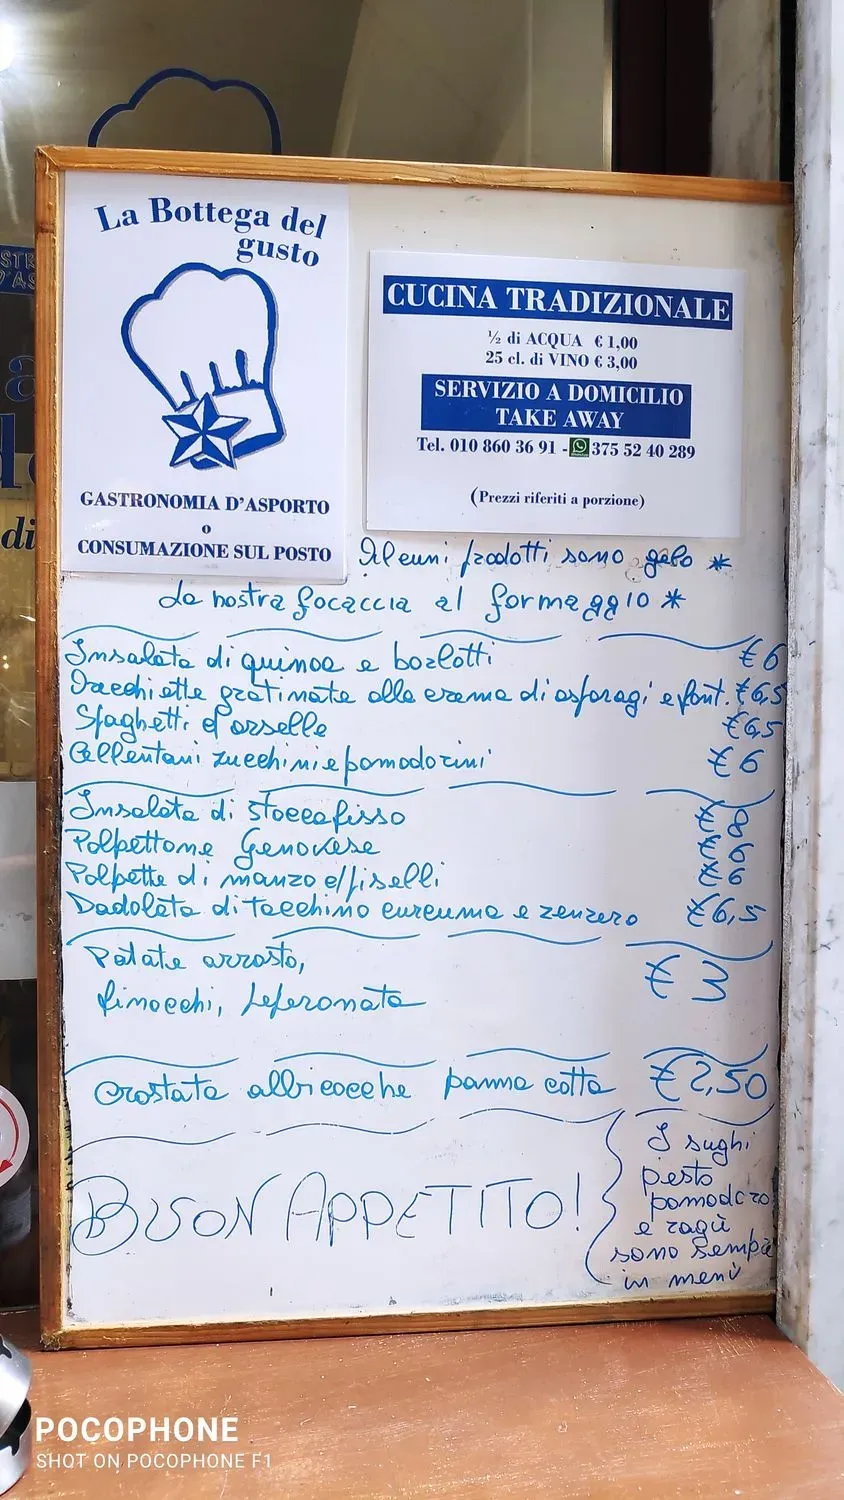 La Bottega del
gusto
GASTRONOMIA D'ASPORTO
o
CONSUMAZIONE SUL POSTO
CUCINA TRADIZIONALE
½ di ACQUA € 1,00
25 cl. di VINO € 3,00
SERVIZIO A DOMICILIO
TAKE AWAY
Tel. 010 860 36 91 - 375 52 40 289
(Prezzi riferiti a porzione)
Alcuni prodotti sono gelo *
La nostra focaccia al formaggio *
Insalata di quinoa e borlotti €6
Orecchiette gratinate alla crema di asparagi e font. €6,5
Spaghetti d'arselle €6,5
Cellentani zucchini e pomodorini €6
Insalata di stoccafisso €8
Polpettone Genovese €6
Polpette di manzo c/piselli €6
Dadolata di tacchino curcuma e zenzero €6,5
Patate arrosto,
finocchi, peperonata €3
Crostata albicocche panna cotta €2,50
BUON APPETITO!
I sughi
pesto
pomodoro
e ragù
sono sempre
in menù
POCOPHONE
SHOT ON POCOPHONE F1